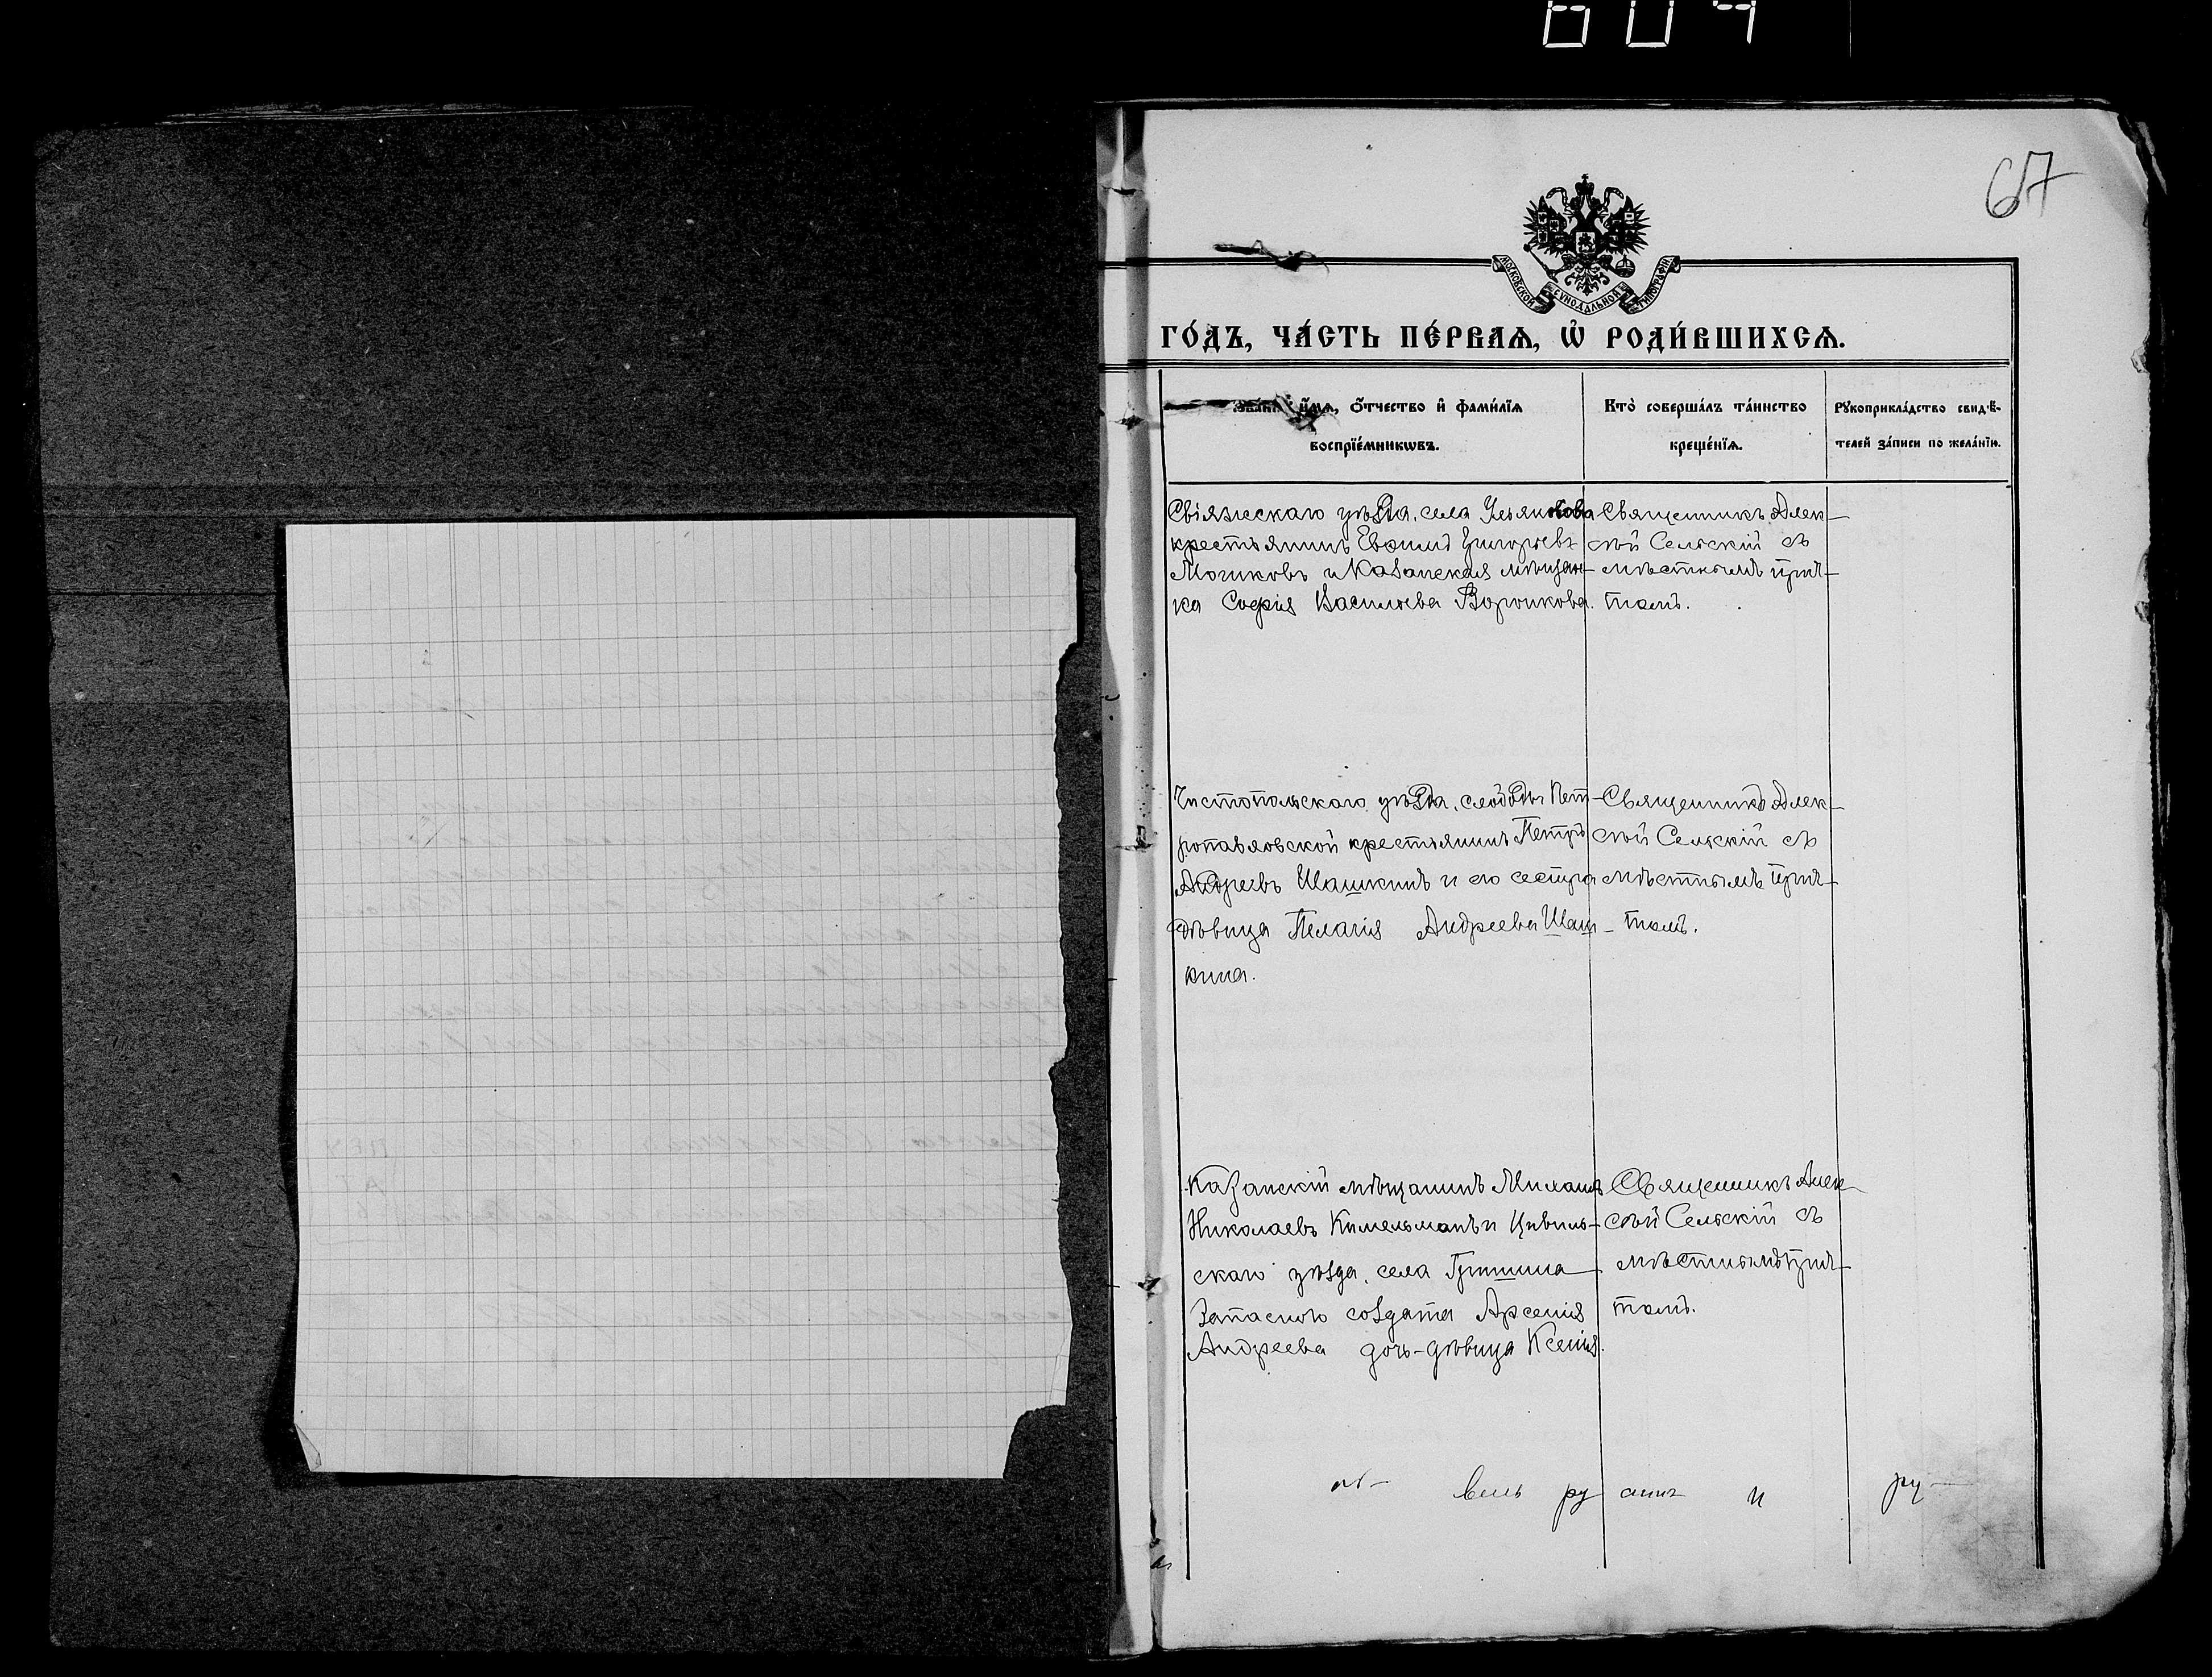 67
МОСКОВСКОЙ СѴНОДАЛЬНОЙ ТИПОГРАФІИ
ГО́ДЪ, ЧА́СТЬ ПЕ́РВАѦ, Ѡ҆ РОДИ́ВШИХСѦ.
и҆́мѧ, ѻ҆́тчество и҆ фами́лїѧ
воспрїе́мникѡвъ.
Кто̀ соверша́лъ та́инство
креще́нїѧ.
Рꙋкоприкла́дство свидѣ́-
телей за́писи по жела́нїю.
Свіяжскаго уѣзда, села Ульянкова
крестьянинъ Евѳимій Григорьевъ
Мочиковъ и Казанская мѣщан-
ка Софія Васильева Воронкова.
Священникъ Алек-
сѣй Сельскій съ
мѣстнымъ прич-
томъ.
Чистопольскаго уѣзда, слободы Пет-
ропавловской крестьянинъ Петръ
Андреевъ Шашкинъ и его сестра
дѣвица Пелагія Андреева Шаш-
кина.
Священникъ Алек-
сѣй Сельскій съ
мѣстнымъ прич-
томъ.
Казанскій мѣщанинъ Михаилъ
Николаевъ Кительманъ и Цивиль-
скаго уѣзда, села Гришина
запаснаго солдата Арсенія
Андреева дочь-дѣвица Ксенія.
Священникъ Алек-
сѣй Сельскій съ
мѣстнымъ прич-
томъ.
ру
и
ру-